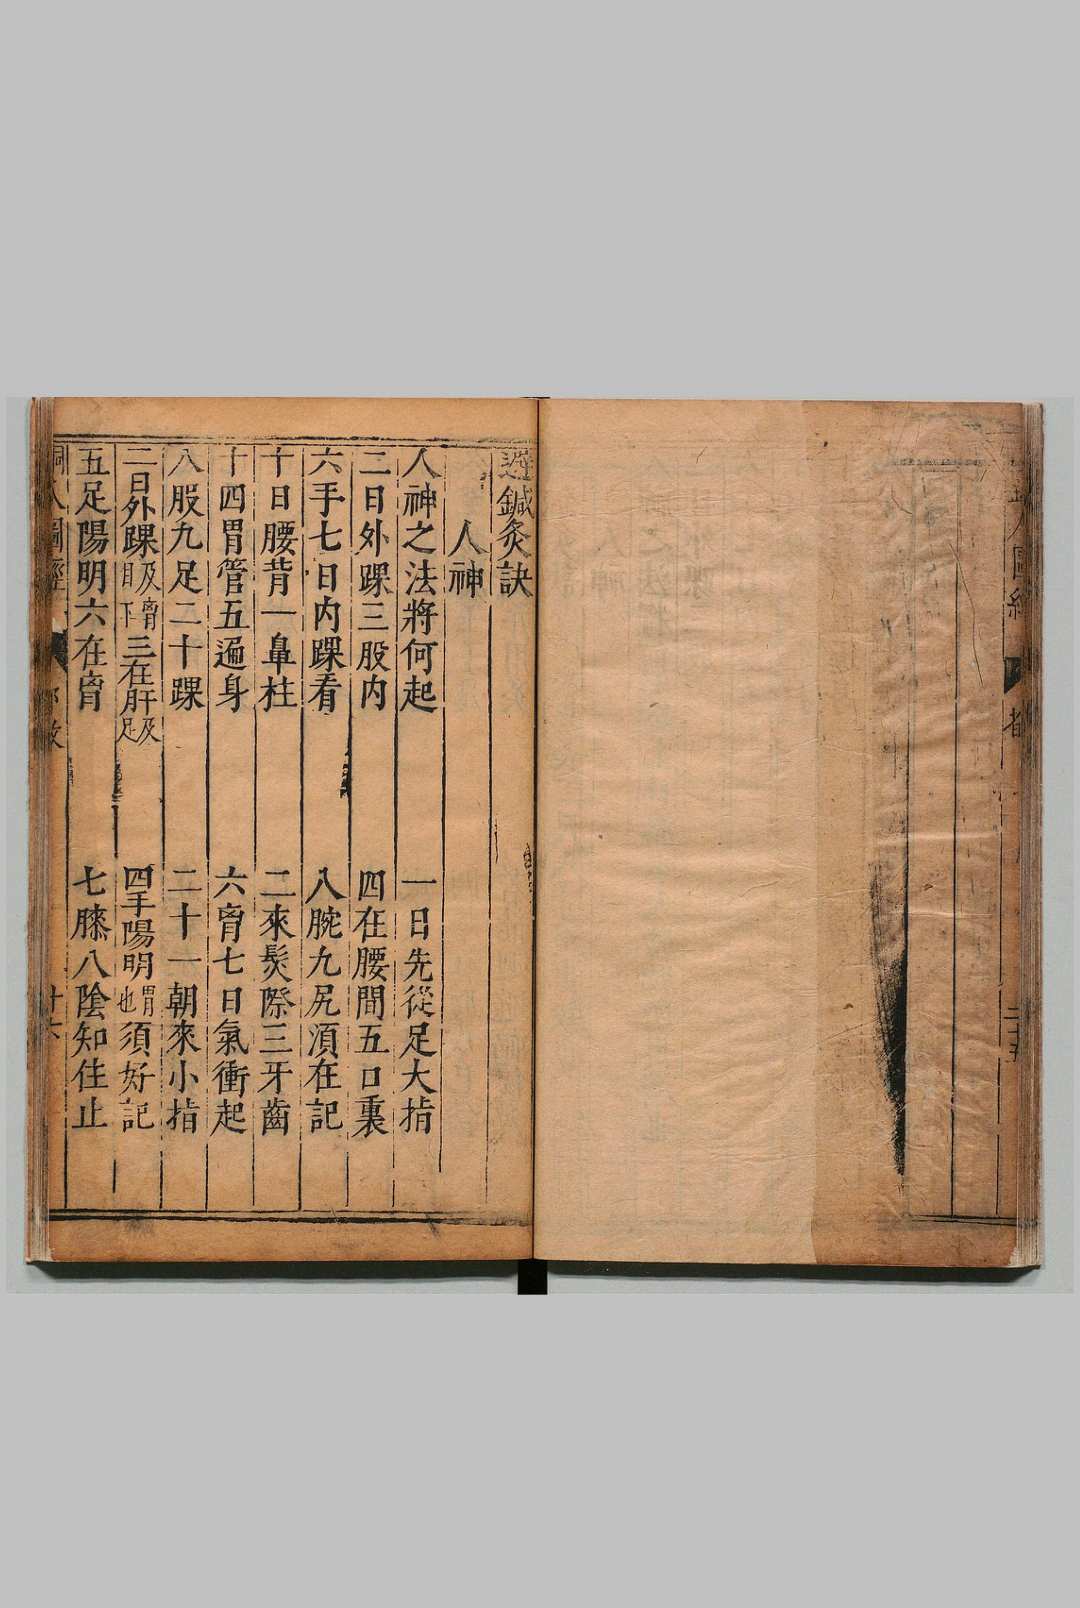 避鍼灸訣
人神
人神之法將何起　一日先從足大指
二日外踝三股内　四在腰間五口裏
六手七日内踝看　八腕九尻湏在記
十日腰背一鼻柱　二來髮際三牙齒
十四胃管五遍身　六胷七日氣衝起
八股九足二十踝　二十一朝來小指
二日外踝及胷目下三在肝及足　四手陽明胃也須好記
五足陽明六在胷　七膝八陰知住止
銅人圖經